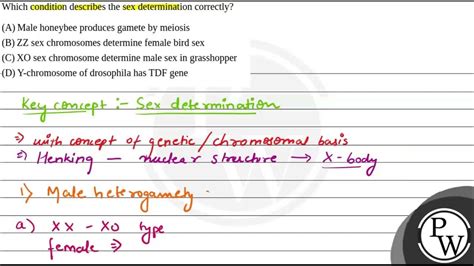 Which condition describes the sex determination correctly?
(A) Male honeybee produces gamete by meiosis
(B) ZZ sex chromosomes determine female bird sex
(C) XO sex chromosome determine male sex in grasshopper
(D) Y-chromosome of drosophila has TDF gene
Key concept :- Sex determination
⇒ with concept of genetic/chromosomal basis
⇒ Henking — nuclear structure → X-body
1) Male heterogamety .
a) XX - XO type
female ⇒
PW